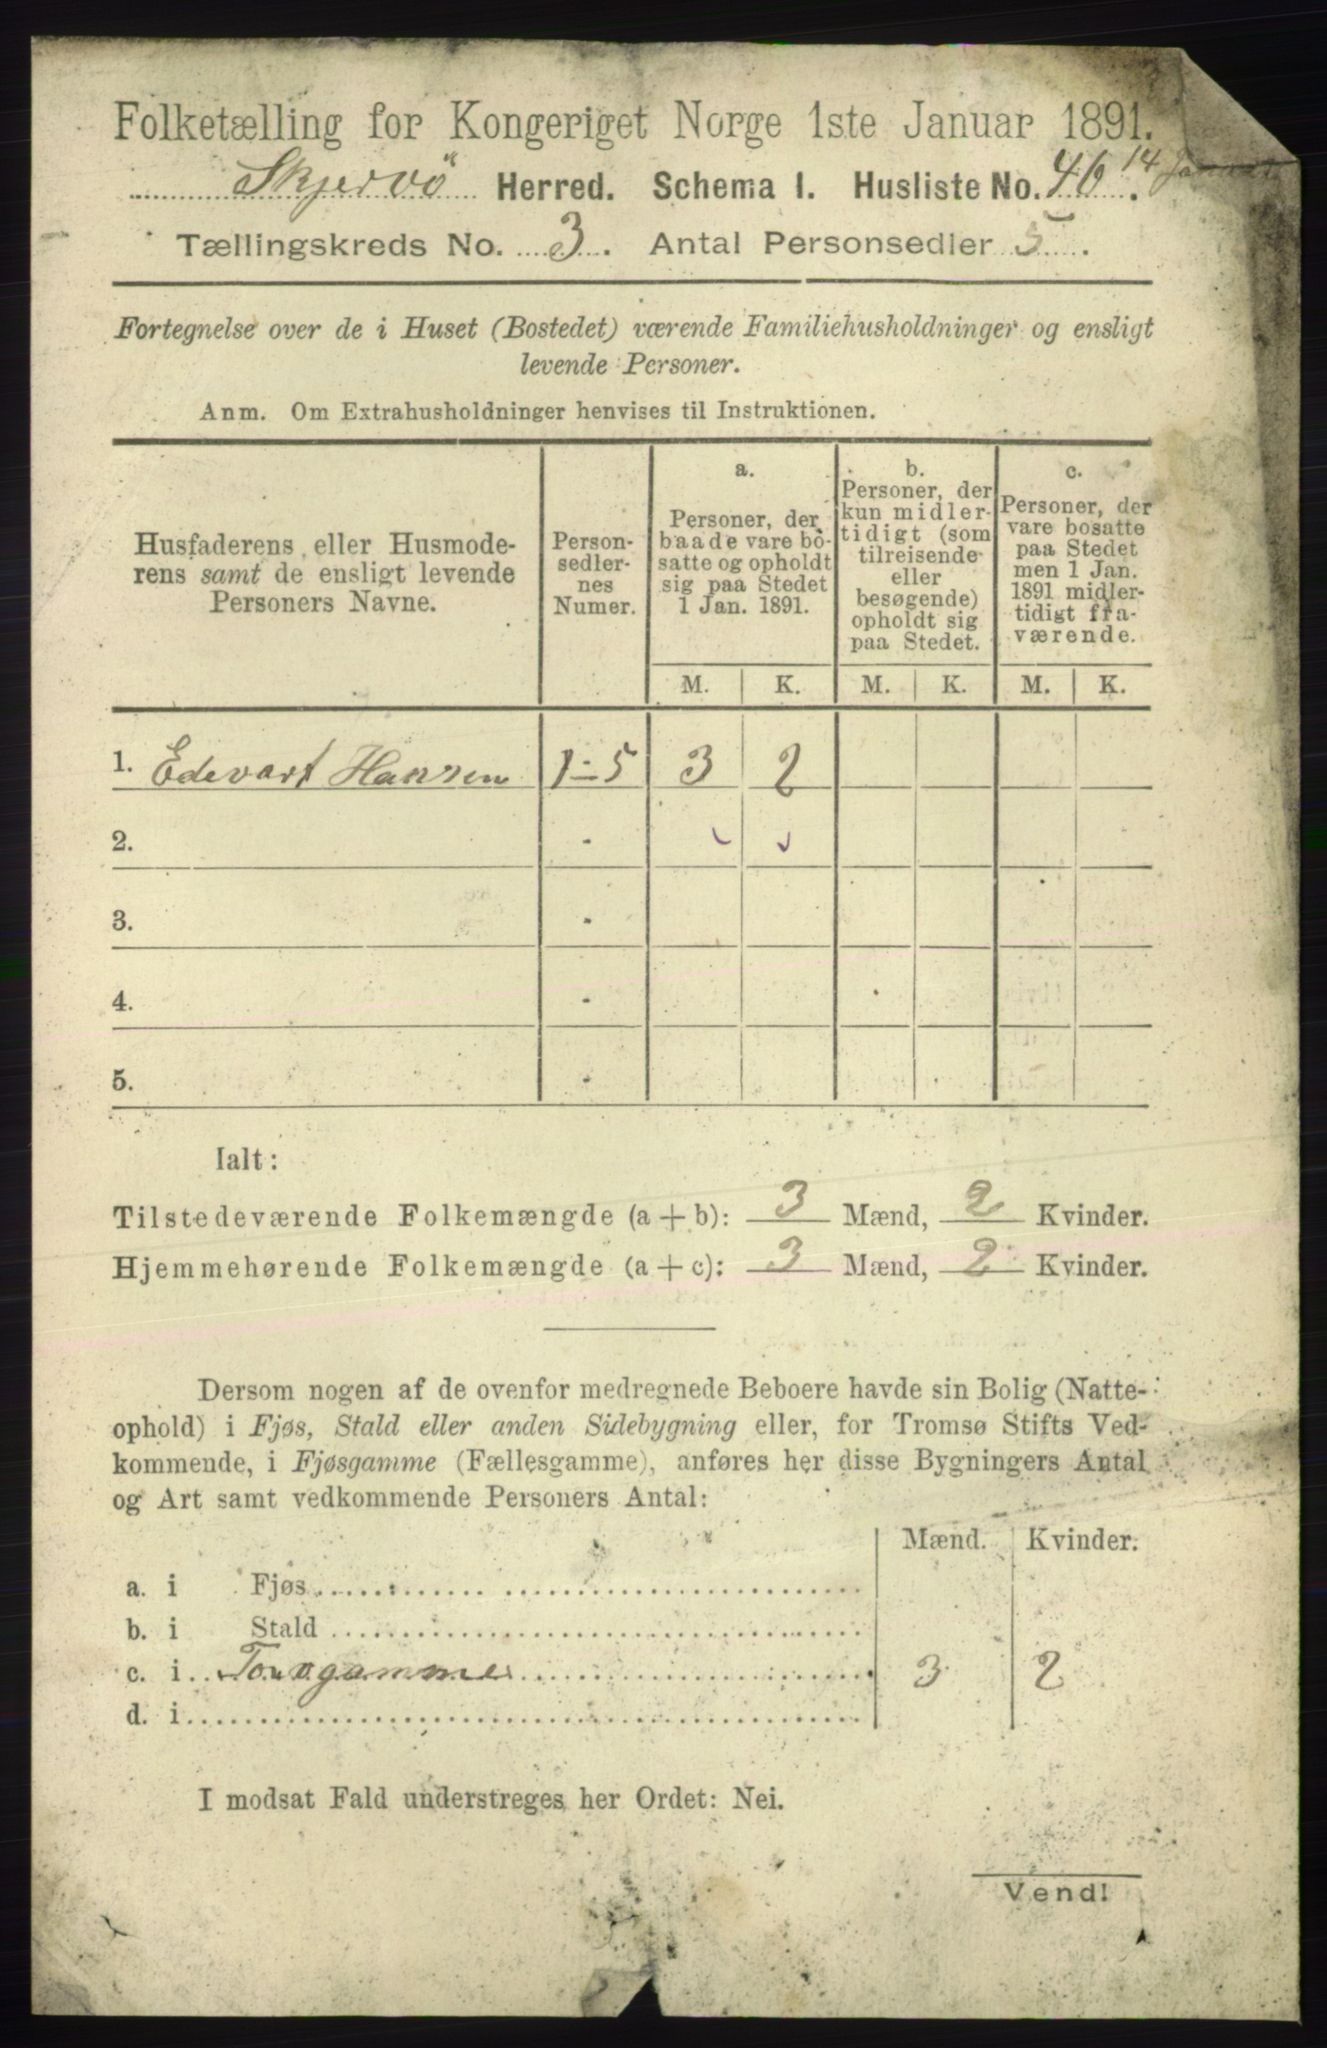 Folketælling for Kongeriget Norge 1ste Januar 1891.
Skjervö Herred. Schema I. Husliste No. 46.
14
Tællingskreds No. 3. Antal Personsedler 5.
Fortegnelse over de i Huset (Bostedet) værende Familiehusholdninger og ensligt
levende Personer.
Anm. Om Extrahusholdninger henvises til Instruktionen.
Husfaderens eller Husmode-
rens samt de ensligt levende
Personers Navne.
Person-
sedler-
nes
Numer.
a.
Personer, der
baade vare bo-
satte og opholdt
sig paa Stedet
1 Jan. 1891.
b.
Personer, der
kun midler-
tidigt (som
tilreisende
eller
besøgende)
opholdt sig
paa Stedet.
c.
Personer, der
vare bosatte
paa Stedet
men 1 Jan.
1891 midler-
tidigt fra-
værende.
M. K. M. K. M. K.
1. Edevart Hansen 1-5 3 2
2. -
3. -
4. -
5. -
Ialt:
Tilstedeværende Folkemængde (a + b): 3 Mænd, 2 Kvinder.
Hjemmehørende Folkemængde (a + c): 3 Mænd, 2 Kvinder.
Dersom nogen af de ovenfor medregnede Beboere havde sin Bolig (Natte-
ophold) i Fjøs, Stald eller anden Sidebygning eller, for Tromsø Stifts Ved-
kommende, i Fjøsgamme (Fællesgamme), anføres her disse Bygningers Antal
og Art samt vedkommende Personers Antal:
Mænd. Kvinder.
a. i Fjøs
b. i Stald
c. i 3 2
d. i
I modsat Fald understreges her Ordet: Nei.
Vend!